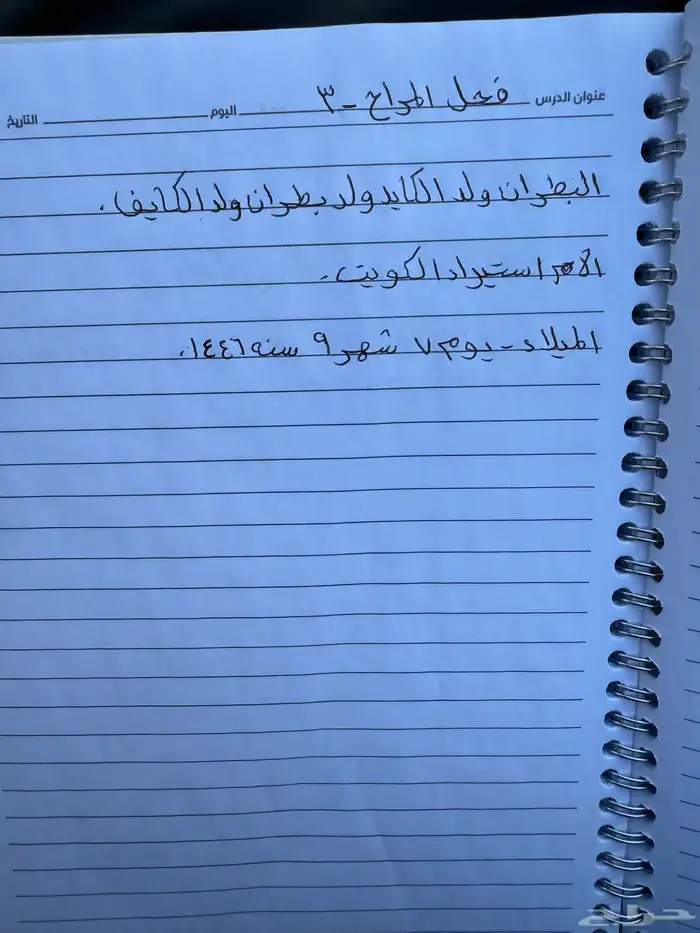 عنوان الدرس فحل المراح - ٣ اليوم التاريخ
البطران ولد الكايد ولد بطران ولد الكايف.
الأم استيراد الكويت.
الميلاد - يوم ٧ شهر ٩ سنه ١٤٤٦.
حراج